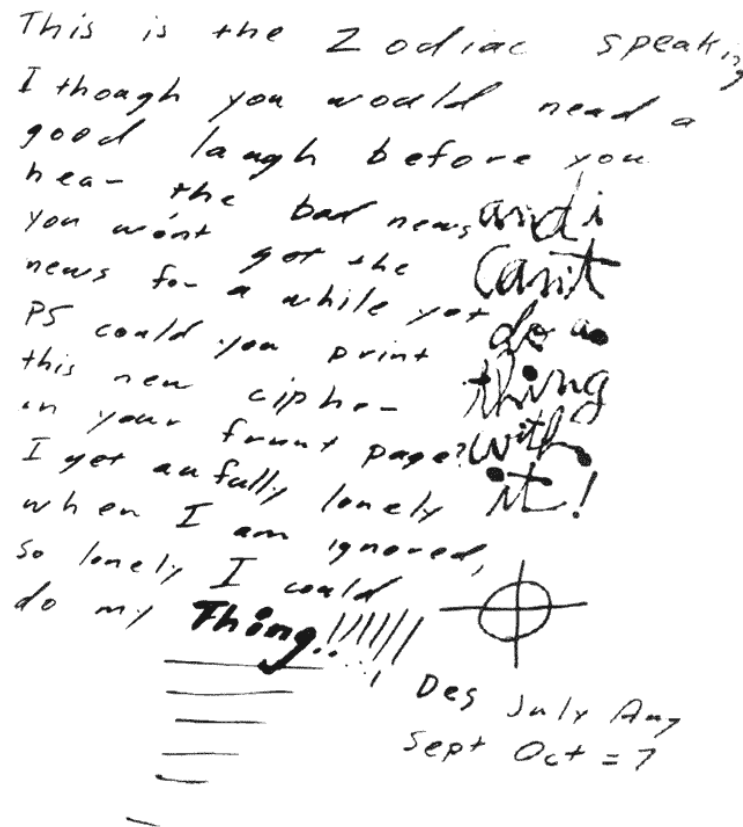 This is the Zodiac speaking
I though you would nead a
good laugh before you
hear the bad news
you won't get the
news for a while yet
PS could you print
this new cipher
in your frunt page?
I get aufully lonely
when I am ignored,
so lonely I could
do my Thing!!!!!!
and i
can't
do a
thing
with
it!
Des July Aug
Sept Oct = 7